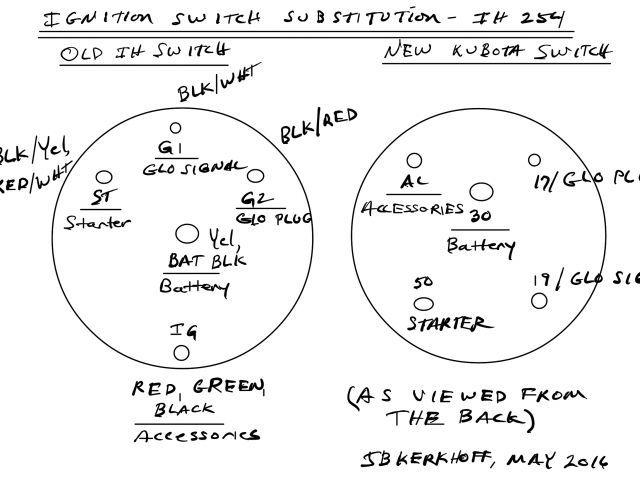 IGNITION SWITCH SUBSTITUTION - IH 254
OLD IH SWITCH
NEW KUBOTA SWITCH
BLK/WHT
BLK/RED
BLK/Yel,
RED/WHT
G1
GLO SIGNAL
ST
Starter
G2
GLO PLUG
Yel,
BAT BLK
Battery
IG
RED, GREEN,
BLACK
Accessories
AC
ACCESSORIES
17/GLO PLU
30
Battery
50
STARTER
19/GLO SIG
(AS VIEWED FROM
THE BACK)
JBKERKHOFF, MAY 2016